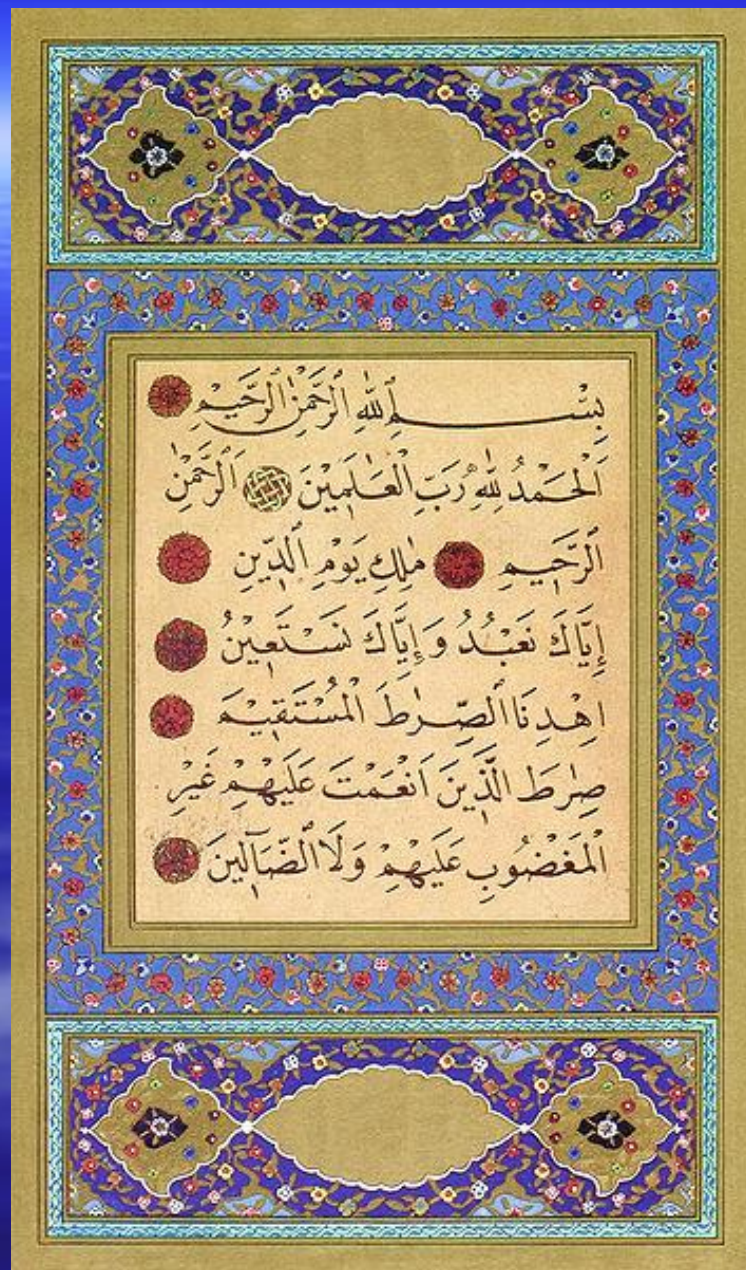 بِسْمِ ٱللّٰهِ ٱلرَّحْمٰنِ ٱلرَّحِيمِ
اَلْحَمْدُ لِلّٰهِ رَبِّ الْعَالَمِينَ اَلرَّحْمٰنِ
ٱلرَّحِيمِ مٰلِكِ يَوْمِ ٱلدِّينِ
إِيَّاكَ نَعْبُدُ وَإِيَّاكَ نَسْتَعِينُ
اِهْدِنَا ٱلصِّرٰطَ الْمُسْتَقِيمَ
صِرٰطَ ٱلَّذِينَ اَنْعَمْتَ عَلَيْهِمْ غَيْرِ
الْمَغْضُوبِ عَلَيْهِمْ وَلَا ٱلضَّآلِّينَ